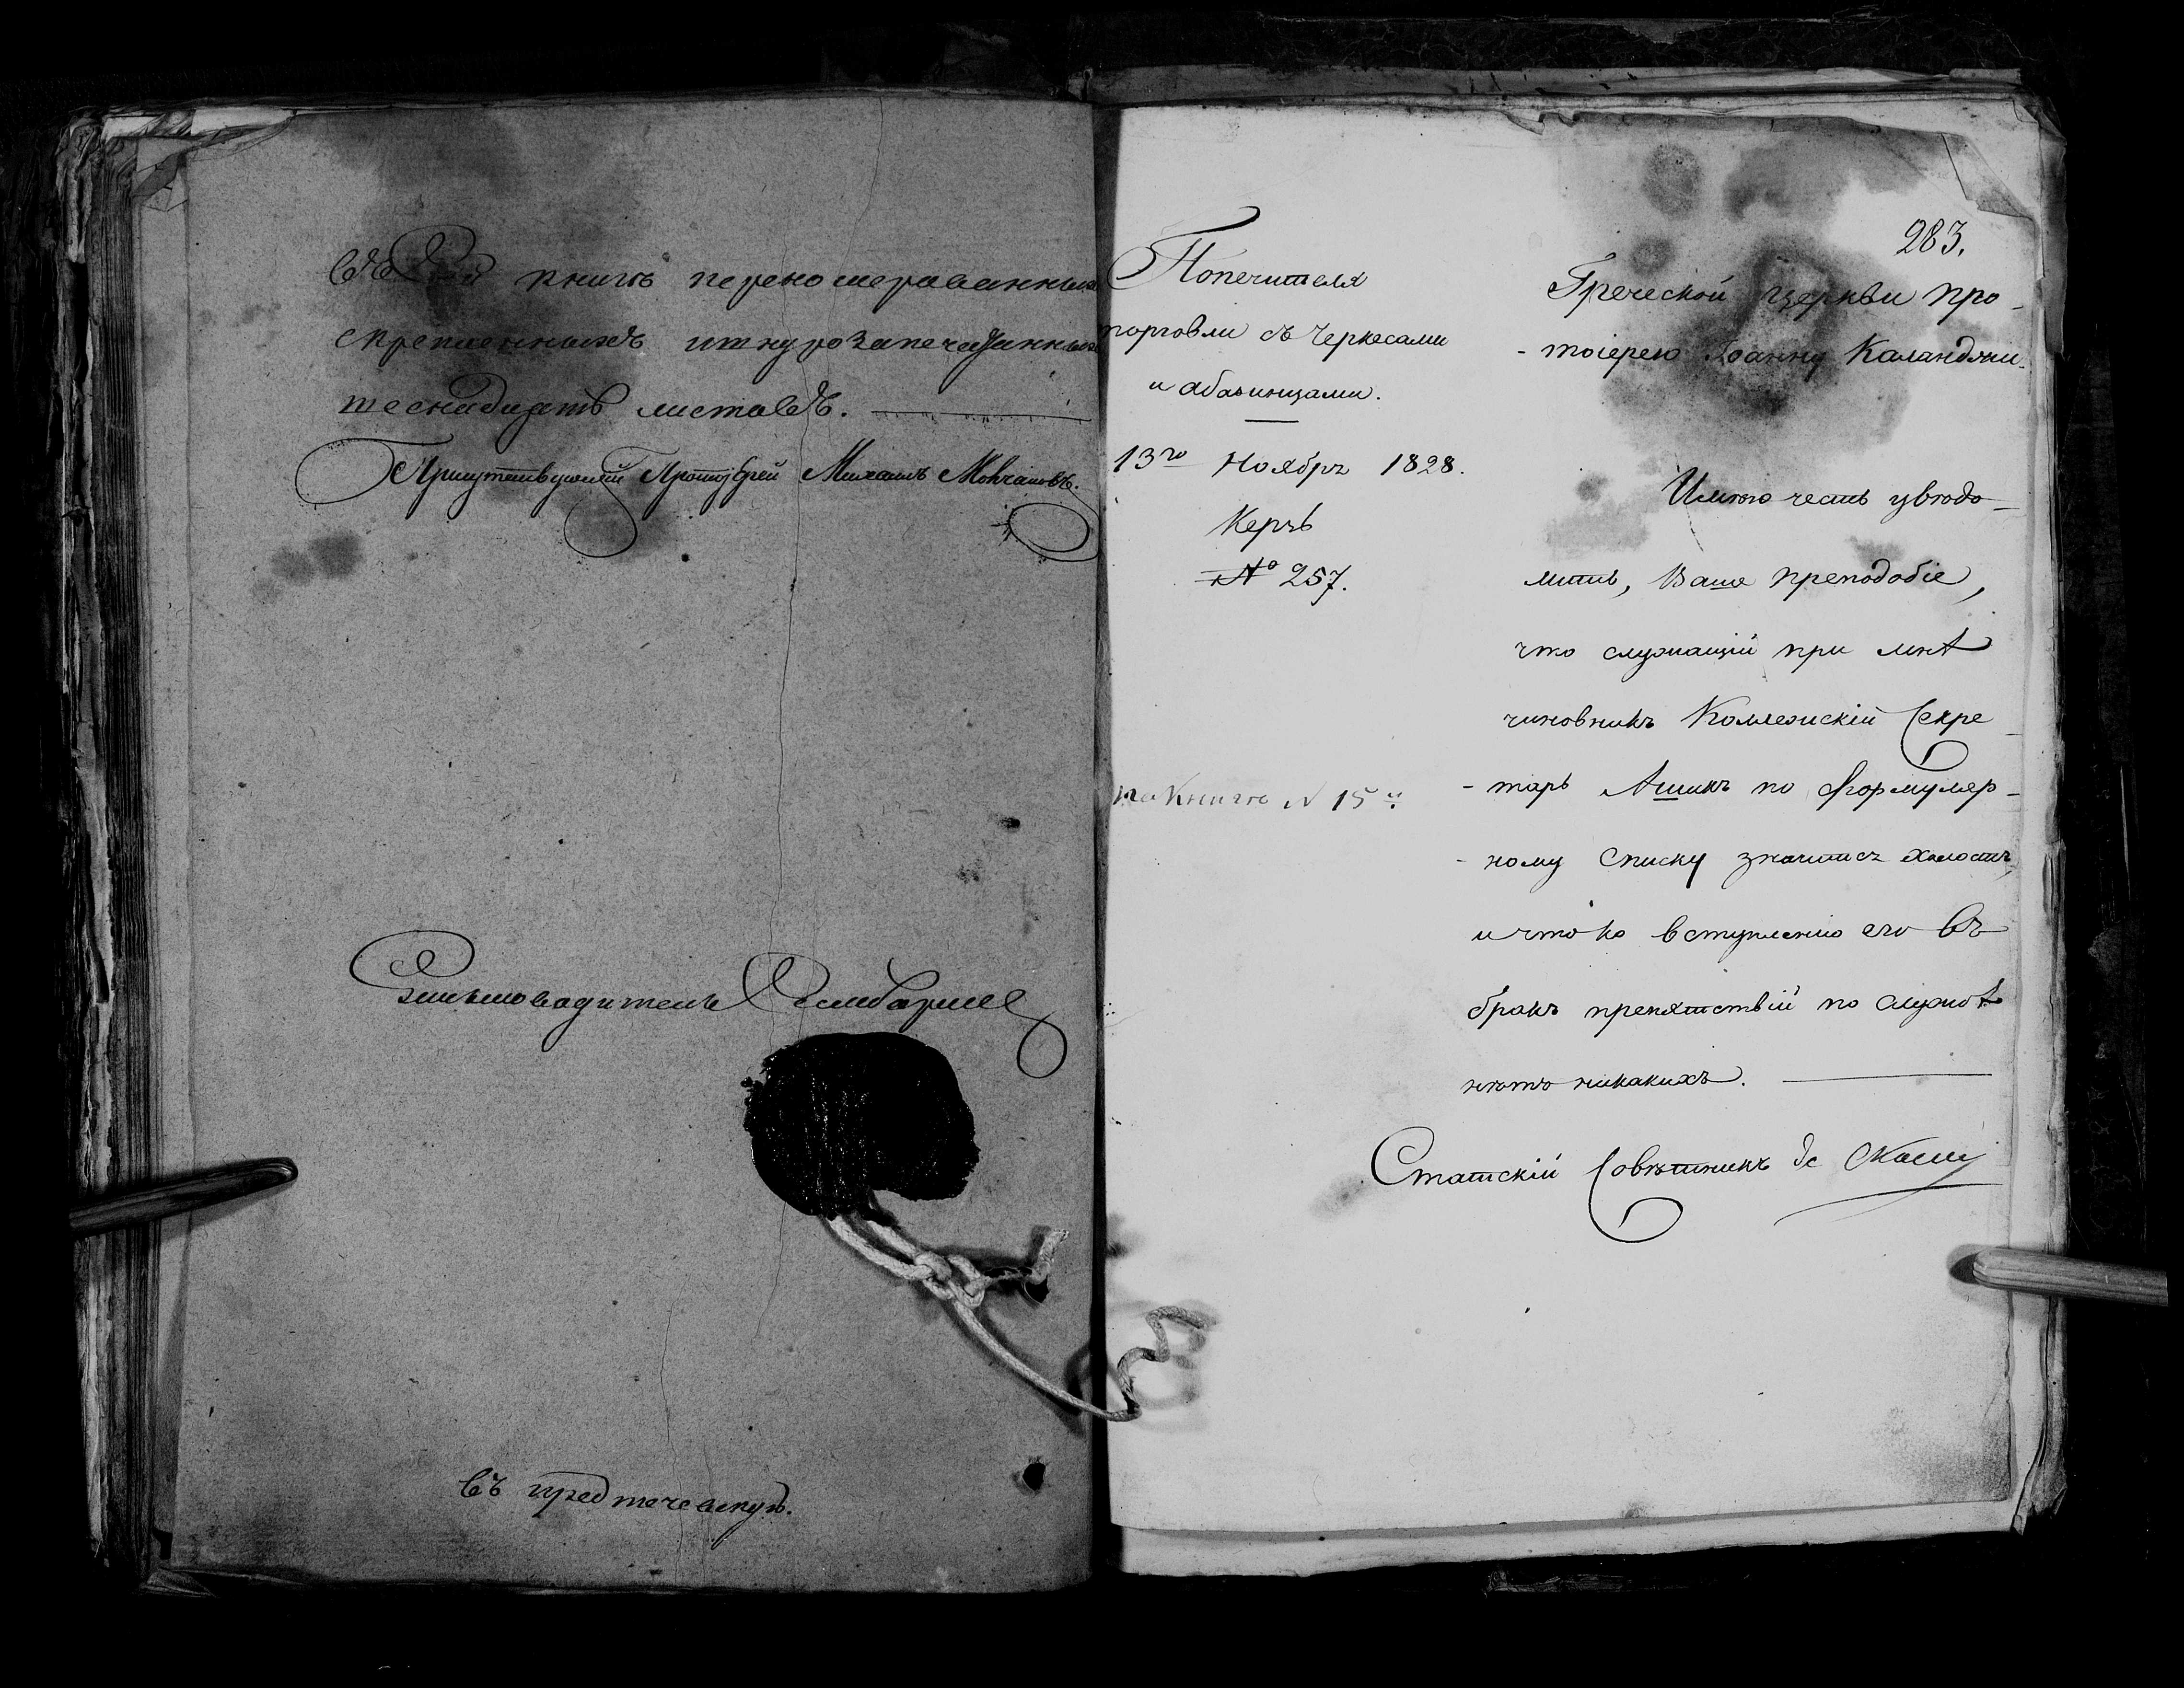 въ сей книгѣ переномерованныхъ
скрепленныхъ шнурозапечатанныхъ
шеснадцать листовъ.
Присутствующій Протоіерей Михаилъ
Письмоводитель
въ предтечевскую.
283.
Попечителя
торговли съ Черкесами
и абазинцами.
13го Ноября 1828.
Керчь
№ 257.
по Книге N 15й
Греческой церкви про-
-тоіерею Іоанну Каланджи.
Имею честь уведо-
мить, Ваше преподобіе,
что служащій при мнѣ
чиновникъ Коллежскій Секре-
-тарь Ашикъ по формуляр-
-ному списку значится холостъ,
и что ко вступленію его въ
бракъ препятствій по службѣ
нетъ никакихъ.
Статскій Советникъ де Скасси